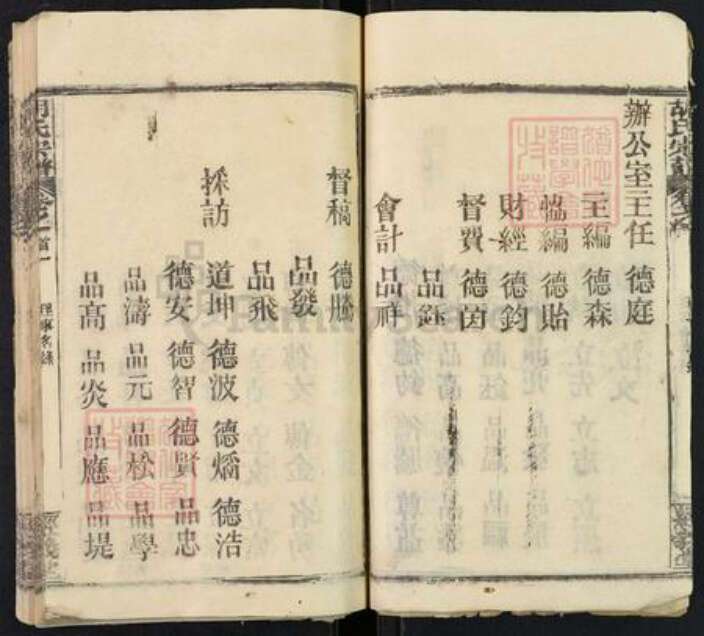 辦公室主任 德庭
主編 德森
協編 德貽
財經 德鈞
督買 德茵
品鈺
會計 品祥
督稿 德騰
品發
品飛
採訪 道坤 德波 德熵 德浩
德安 德智 德賢 品忠
品濤 品元 品松 品學
品高 品炎 品應 品堤